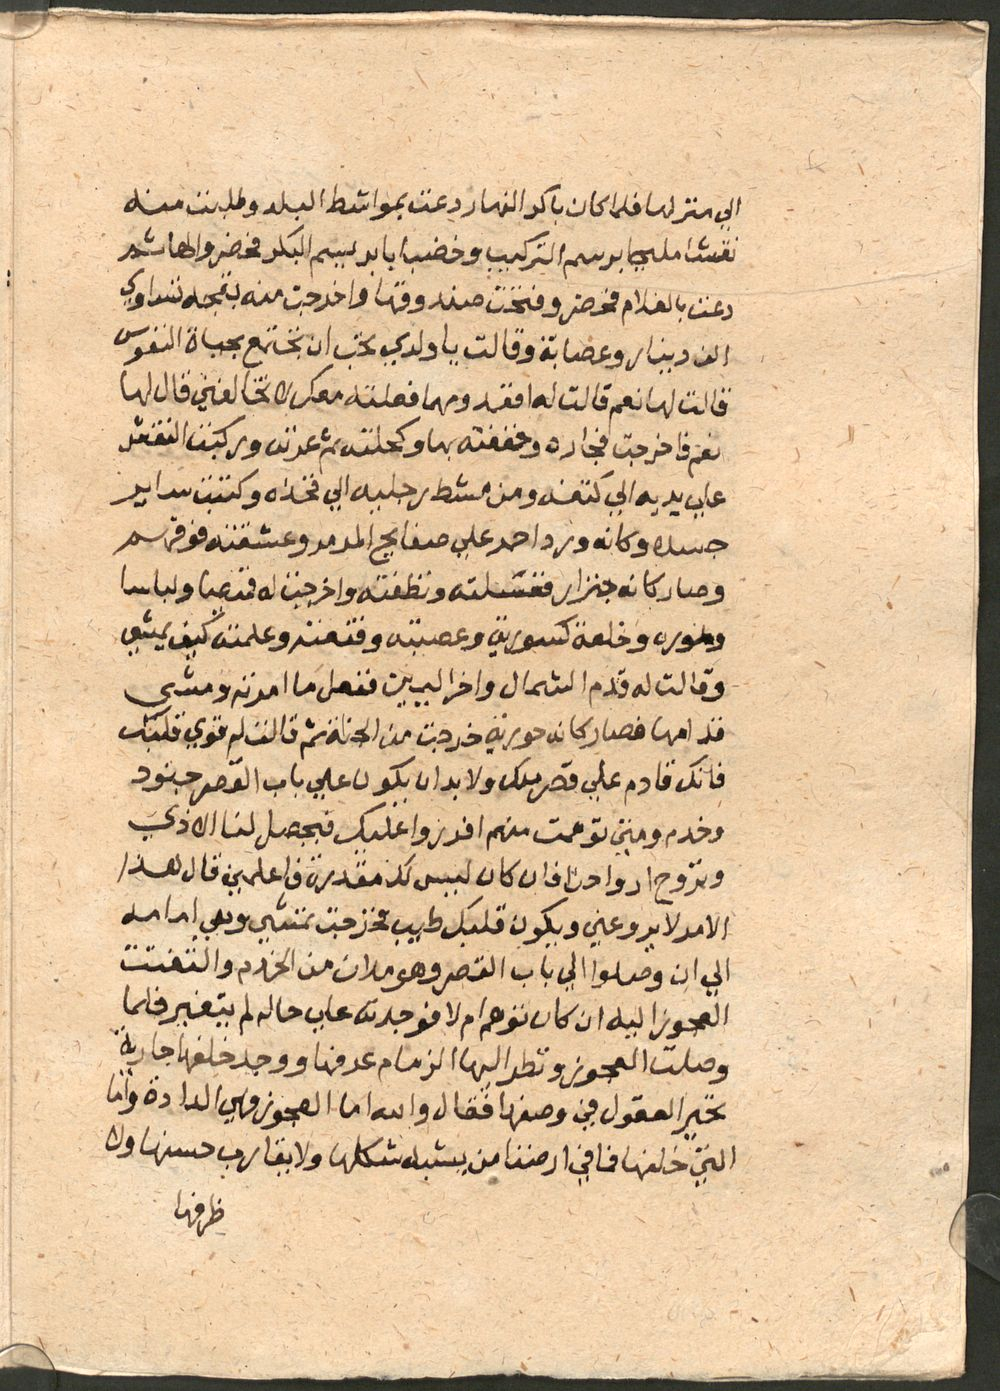 الي منزلها فلما كان باكر النهار دعت بمواشط البلد وطلبت منه
نقشا مليحا برسم التركيب وخضابا برسم البكر فحضروا لها ثم
دعت بالغلام فحضر وفتحت صندوقها واخرجت منه بقجه تساوي
الف دينار وعصابة وقالت يا ولدي تحب ان تجتمع بحياة النفوس
قالت لها نعم قالت له اقعد ومهما فعلته معك لا تخالفني قال لها
نعم فاخرجت فجاره وخففته بها وكحلته ثم عرته وركبت النقش
علي يديه الي كتفه ومن مشط رجليه الي فخداه وكتبت ساير
جسده وكانه ورد احمر علي صفايح المرمر وعشقته فوقهم
وصار كانه جنزار فغسلته ونظفته واخرجت له قميصا ولباسا
وطوره وخلعة كسروية وعصبته وقنعته وعلمته كيف يمشي
وقالت له قدم الشمال واخر اليمين ففعل ما امرته ومشي
قدامها فصار كانه حورية خرجت من الجنة ثم قالت له قوي قلبك
فانك قادم علي قصر ملك ولا بد ان يكون علي باب القصر جنود
وخدم ومتي توهمت منهم افدروا عليك فيحصل لنا الاذي
وتروح ارواحنا فان كان ليس لك مقدرة فاعلمني قال لهذا
الامر لا يروعني ويكون قلبك طيب فخرجت تمشي وهي امامه
الي ان وصلوا الي باب القصر وهو ملان من الخدم والتفتت
العجوز اليه ان كان توهم ام لا فوجدته علي حاله لم يتغير فلما
وصلت العجوز ونظر اليها الزمام عرفها ووجد خلفها جارية
تحير العقول في وصفها فقال والله اما العجوز فهي الدادة واما
التي خلفها فما في ارضنا من يشبه شكلها ولا يقارب حسنها ولا
ظرفها